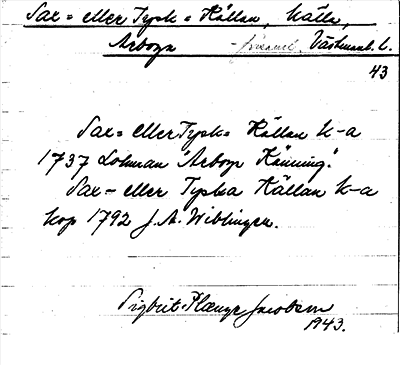 Sax= eller Tysk= Källan, källa,
Arboga Västmanl. l.
43
Sax= eller Tysk= Källan k-a
1737 Lohman "Arboga Känning".
Sax- eller Tyska Källan k-a
kop 1792 J. A. Wiblingen.
Sigbrit Plænge Jacobson
1943.